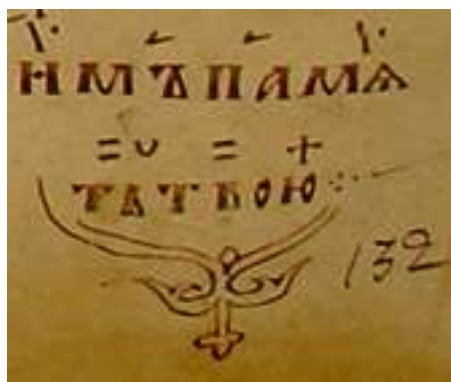 ИМЪПАМѦ
ТЬТВОЮ
132